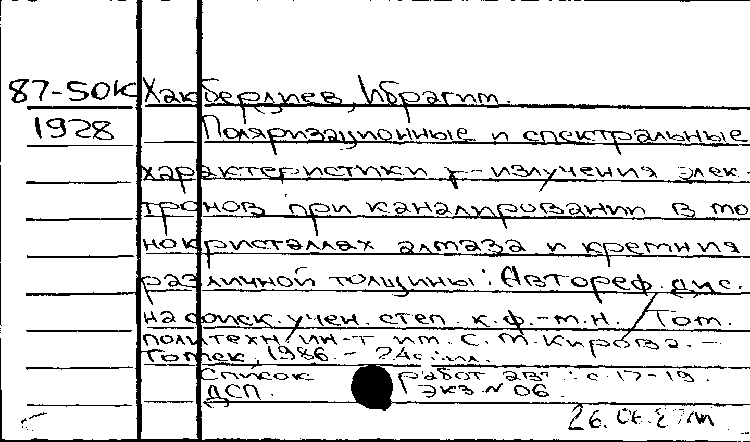 87-5ОК Хакбердиев, Ибрагим.
1928 Поляризационные и спектральные
характеристики γ-излучения элек-
тронов при каналировании в мо
нокристаллах алмаза и кремния
различной толщины: Автореф. дис.
на соиск. учен. степ. к.ф.-м.н. / Том.
политехн. ин-т им. С.М. Кирова. -
Томск, 1986. - 24с.: ил.
Список работ авт.: с. 17-19.
ДСП. Экз N 06.
26.06.87